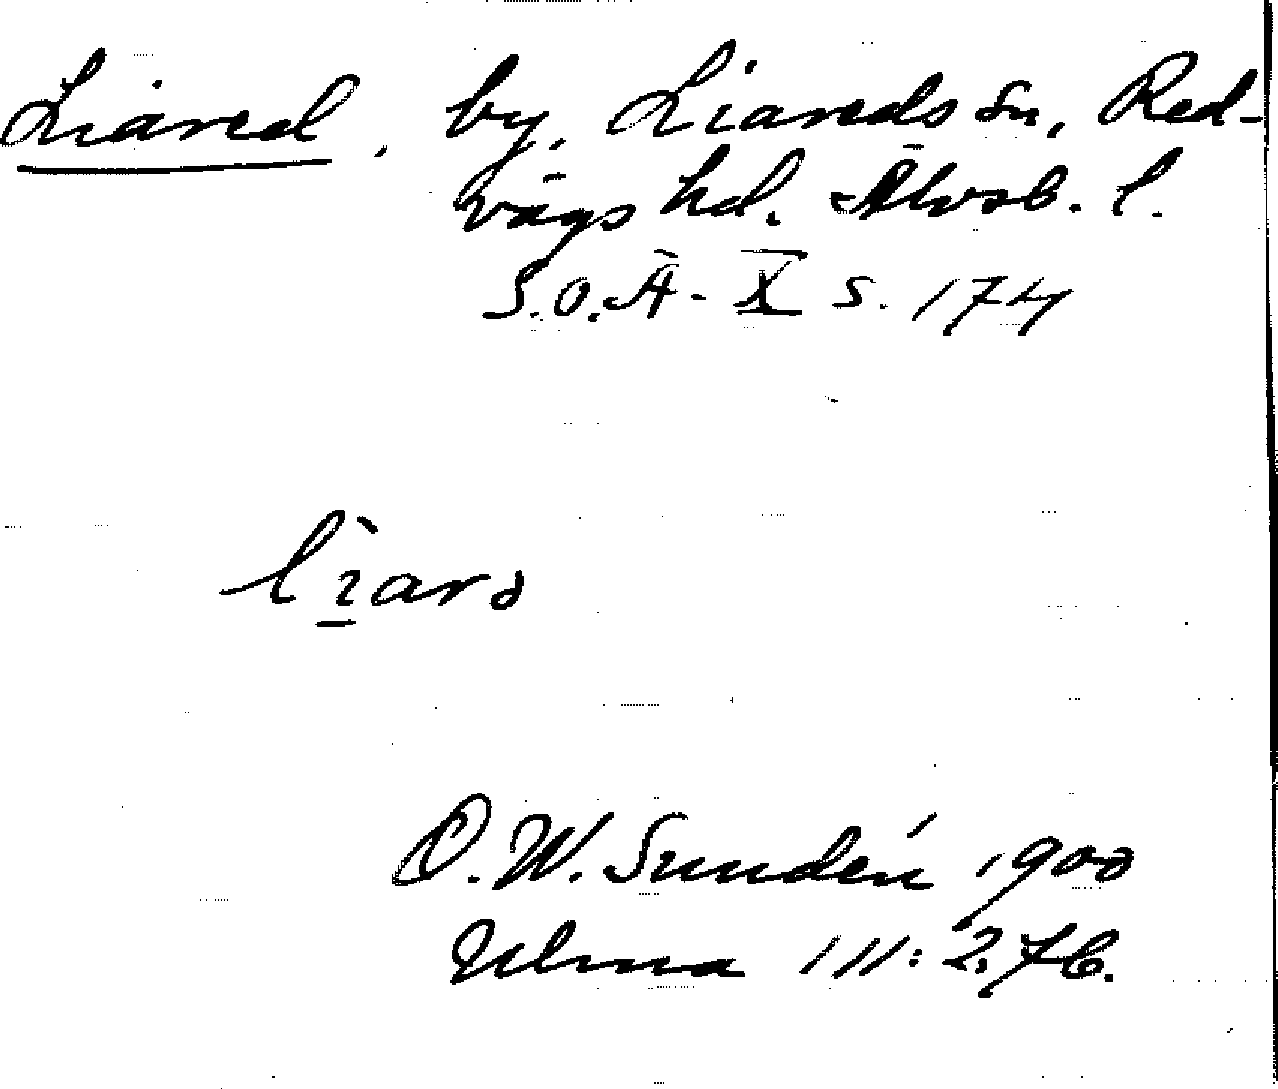 Liared, by, Liareds sn, Red-
vägs hd. Älvsb. l.
S.O.Ä- X s. 174
D.W. Sundén 1900
Ulma 111: 2, 76.